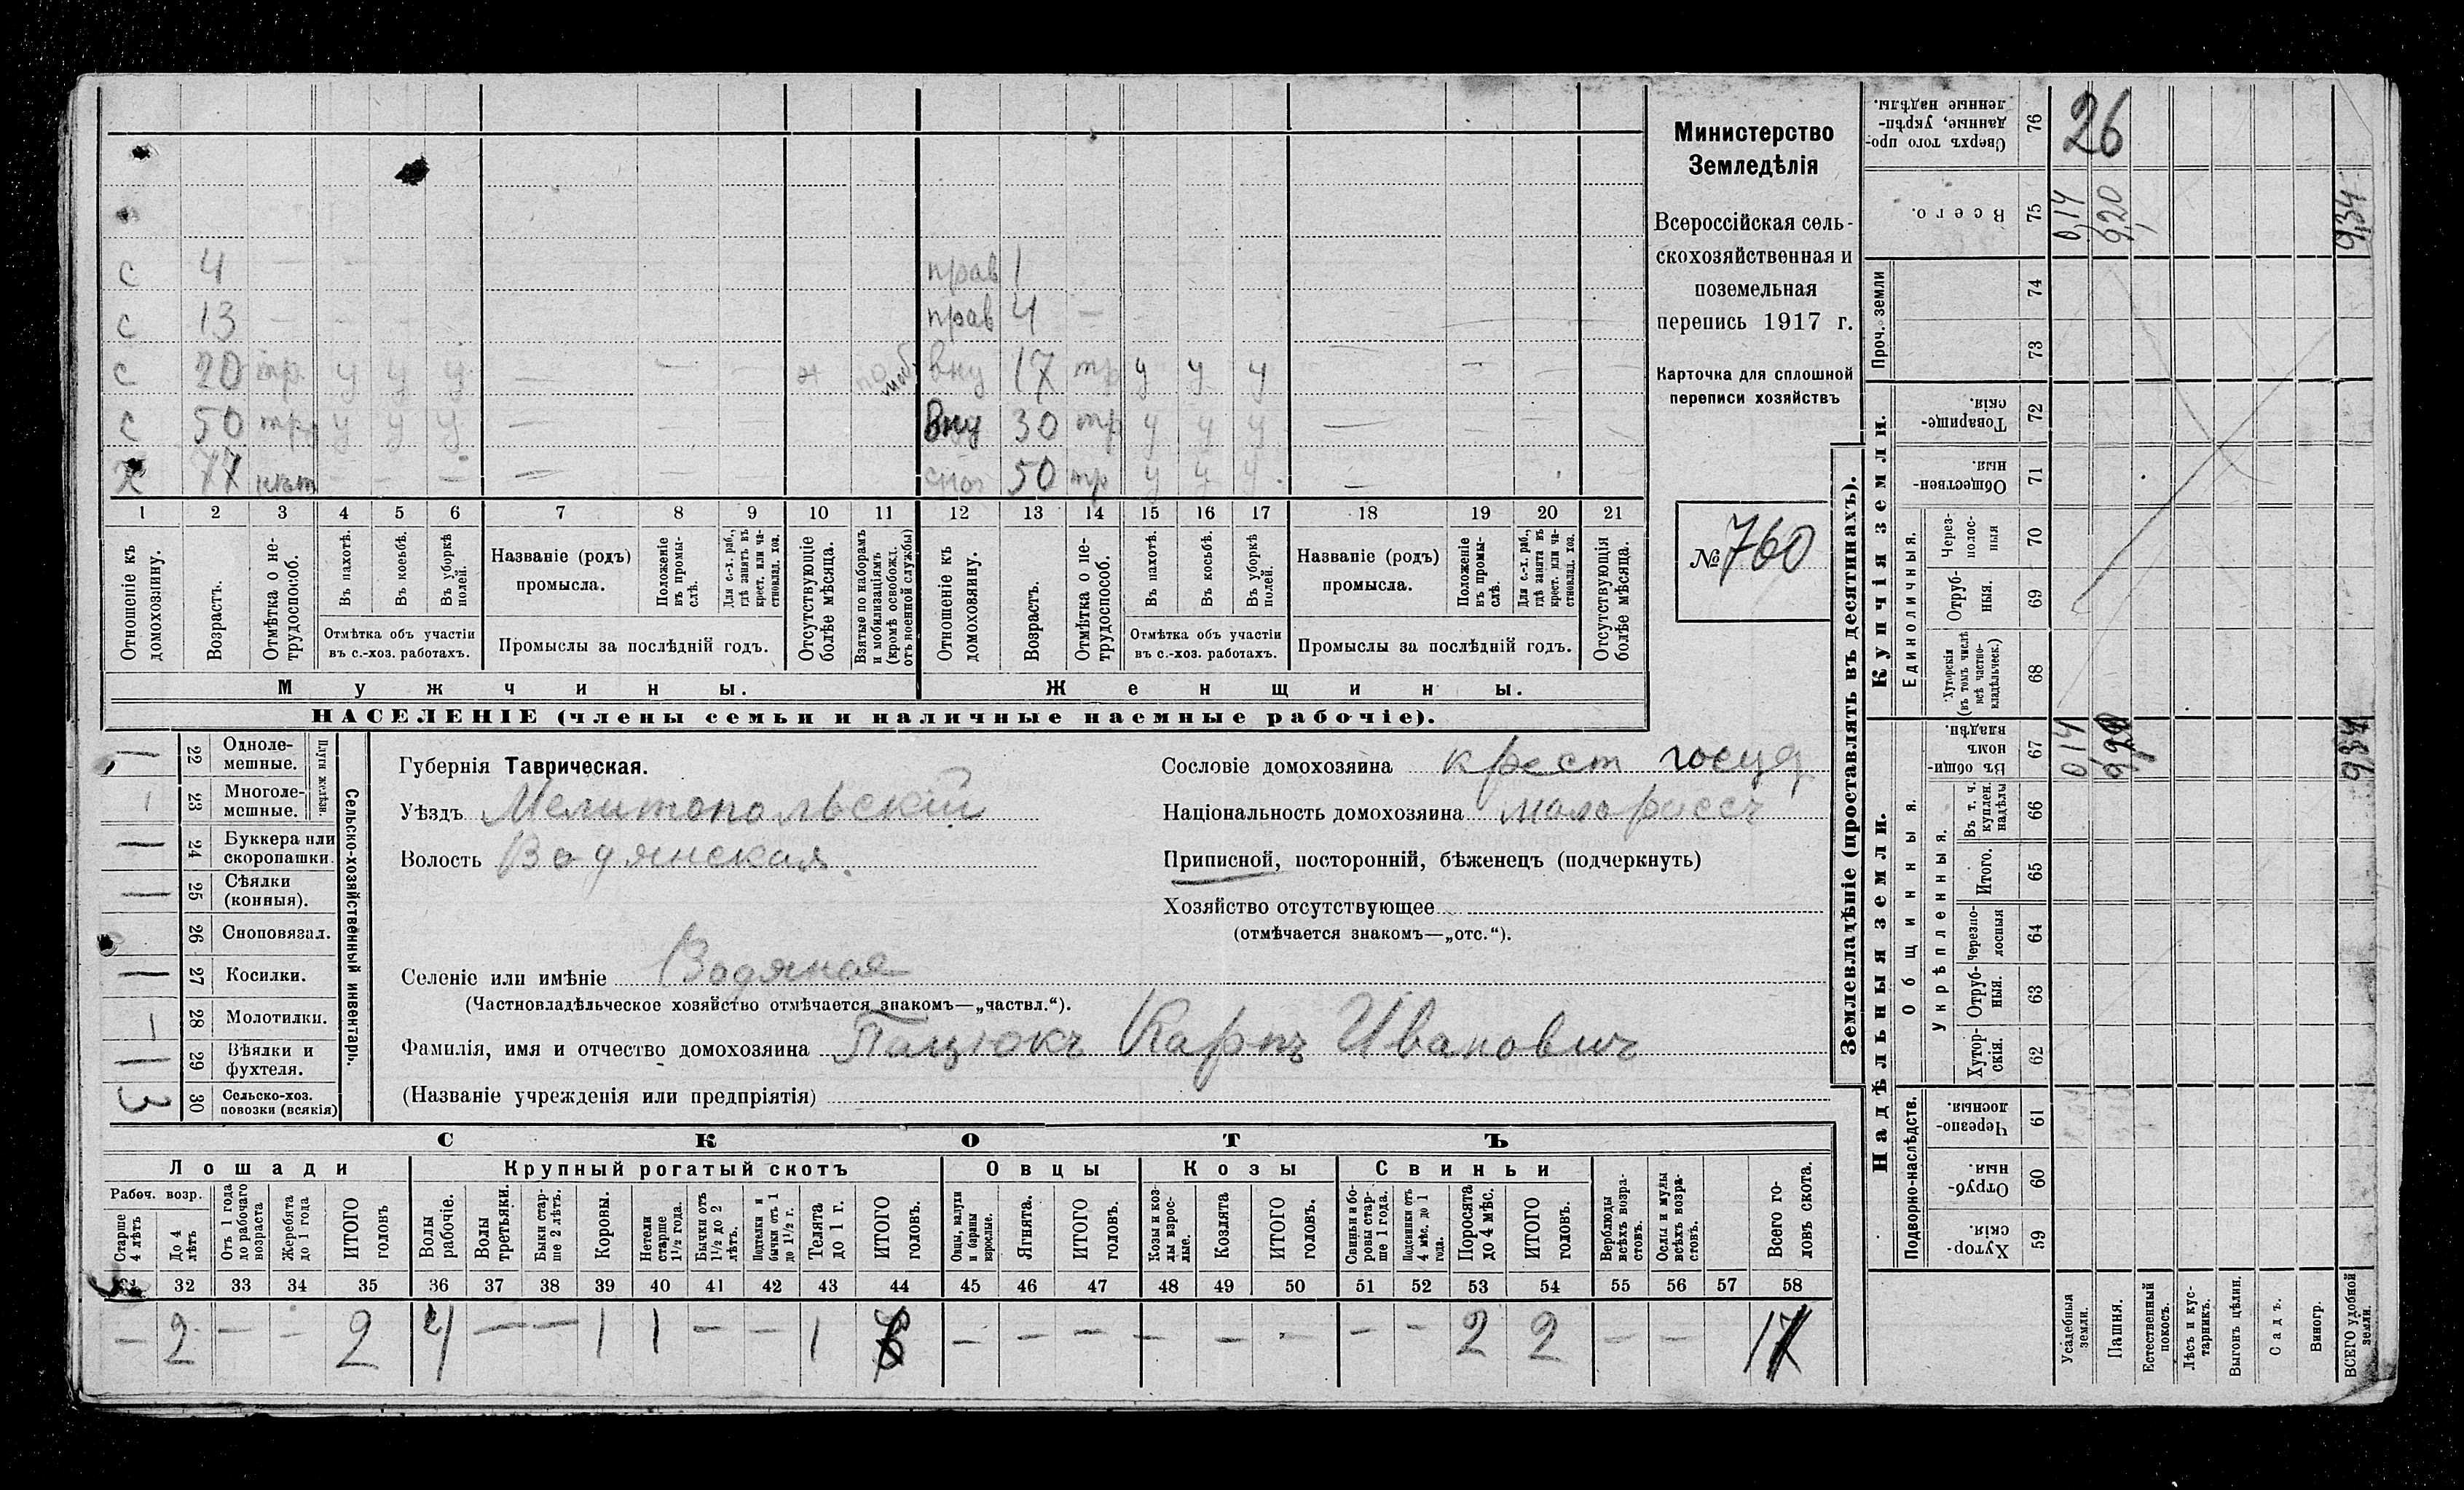 Министерство
Земледѣлія
Всероссійская сель-
скохозяйственная и
поземельная
перепись 1917 г.
Карточка для сплошной
переписи хозяйствъ
№ 760
с 4 — прав 1
с 13 — прав 4 —
с 20 тр. у у у — — — моб. вну 17 тр у у у — — —
с 50 тр у у у — — — вну 30 тр у у у — — —
Х 77 нѣт — — — — — — 50 тр у у у —
1 2 3 4 5 6 7 8 9 10 11 12 13 14 15 16 17 18 19 20 21
Отношеніе къ домохозяину.
Возрастъ.
Отмѣтка о не-трудоспособ.
Въ пахотѣ.
Въ косьбѣ.
Въ уборкѣ полей.
Отмѣтка объ участіи
въ с.-хоз. работахъ.
Названіе (родъ)
промысла.
Положеніе въ промы-слѣ.
Для с.-х. раб., гдѣ занятъ въ крест. или ча-стновлад. хоз.
Промыслы за послѣдній годъ.
Отсутствующіе болѣе мѣсяца.
Взятые по наборамъ и мобилизаціямъ (кромѣ освобожд. отъ военной службы)
Отношеніе къ домохозяину.
Возрастъ.
Отмѣтка о не-трудоспособ.
Въ пахотѣ.
Въ косьбѣ.
Въ уборкѣ полей.
Отмѣтка объ участіи
въ с.-хоз. работахъ.
Названіе (родъ)
промысла.
Положеніе въ промы-слѣ.
Для с.-х. раб., гдѣ занята въ крест. или ча-стновлад. хоз.
Промыслы за послѣдній годъ.
Отсутствующія болѣе мѣсяца.
Мужчины. Женщины.
НАСЕЛЕНІЕ (члены семьи и наличные наемные рабочіе).
Сельско-хозяйственный инвентарь.
Плуги желѣзн.
— 22 Одноле-мешные.
23 Многоле-мешные.
— 24 Буккера или скоропашки.
— 25 Сѣялки (конныя).
26 Сноповязал.
— 27 Косилки.
28 Молотилки.
— 29 Вѣялки и фухтеля.
3 30 Сельско-хоз. повозки (всякія)
Губернія Таврическая.
Уѣздъ Мелитопольскій
Волость Водянская.
Селеніе или имѣніе Водяное
(Частновладѣльческое хозяйство отмѣчается знакомъ—„частвл.“).
Фамилія, имя и отчество домохозяина Пацюкъ Карпъ Ивановичъ
(Названіе учрежденія или предпріятія)
Сословіе домохозяина крест госуд
Національность домохозяина малоросс
Приписной, посторонній, бѣженецъ (подчеркнуть)
Хозяйство отсутствующее
(отмѣчается знакомъ—„отс.“).
СКОТЪ
Лошади Крупный рогатый скотъ Овцы Козы Свиньи
Рабоч. возр.
Старше 4 лѣтъ
До 4 лѣтъ
Отъ 1 года до рабочаго возраста
Жеребята до 1 года
ИТОГО головъ
Волы рабочіе.
Волы третьяки.
Быки стар-ше 2 лѣтъ.
Коровы.
Нетели старше 1½ года.
Бычки отъ 1½ до 2 лѣтъ.
Подтелки и бычки отъ 1 до 1½ г.
Телята до 1 г.
ИТОГО головъ.
Овцы, валухи и бараны взрослые.
Ягнята.
ИТОГО головъ.
Козы и коз-лы взрос-лые.
Козлята
ИТОГО головъ.
Свиньи и бо-ровы стар-ше 1 года.
Подсвинки отъ 4 мѣс. до 1 года.
Поросята до 4 мѣс.
ИТОГО головъ.
Верблюды всѣхъ возра-стовъ.
Ослы и мулы всѣхъ возра-стовъ.
Всего го-ловъ скота.
31 32 33 34 35 36 37 38 39 40 41 42 43 44 45 46 47 48 49 50 51 52 53 54 55 56 57 58
— 2 — — 2 4 — — 1 1 — — 1 — — — — — — — — 2 2 — — 1
Землевладѣніе (проставлять въ десятинахъ).
Надѣльныя земли. Купчія земли. Проч. земли
Подворно-наслѣдств. Общинныя. Укрѣпленныя. Единоличныя.
59 Хутор-скія.
60 Отруб-ныя.
61 Черезпо-лосныя
62 Хутор-скія.
63 Отруб-ныя.
64 Черезпо-лосныя
65 Итого.
66 Въ т. ч. куплен. надѣлы
67 Въ общин-номъ владѣн.
68 Хуторскія (въ томъ числѣ всѣ частно-владѣльческ.)
69 Отруб-ныя.
70 Через-полос-ныя
71 Обществен-ныя.
72 Товарище-скія.
73
74
75 Всего.
76 Сверхъ того про-данные, укрѣп-ленные надѣлы.
Усадебныя земли. 0,14 0,14
Пашня. 9,20 9,20 26
Естественный покосъ.
Лѣсъ и кус-тарникъ.
Выгонъ цѣлин.
Садъ.
Виногр.
ВСЕГО удобной земли. 9,34 9,34